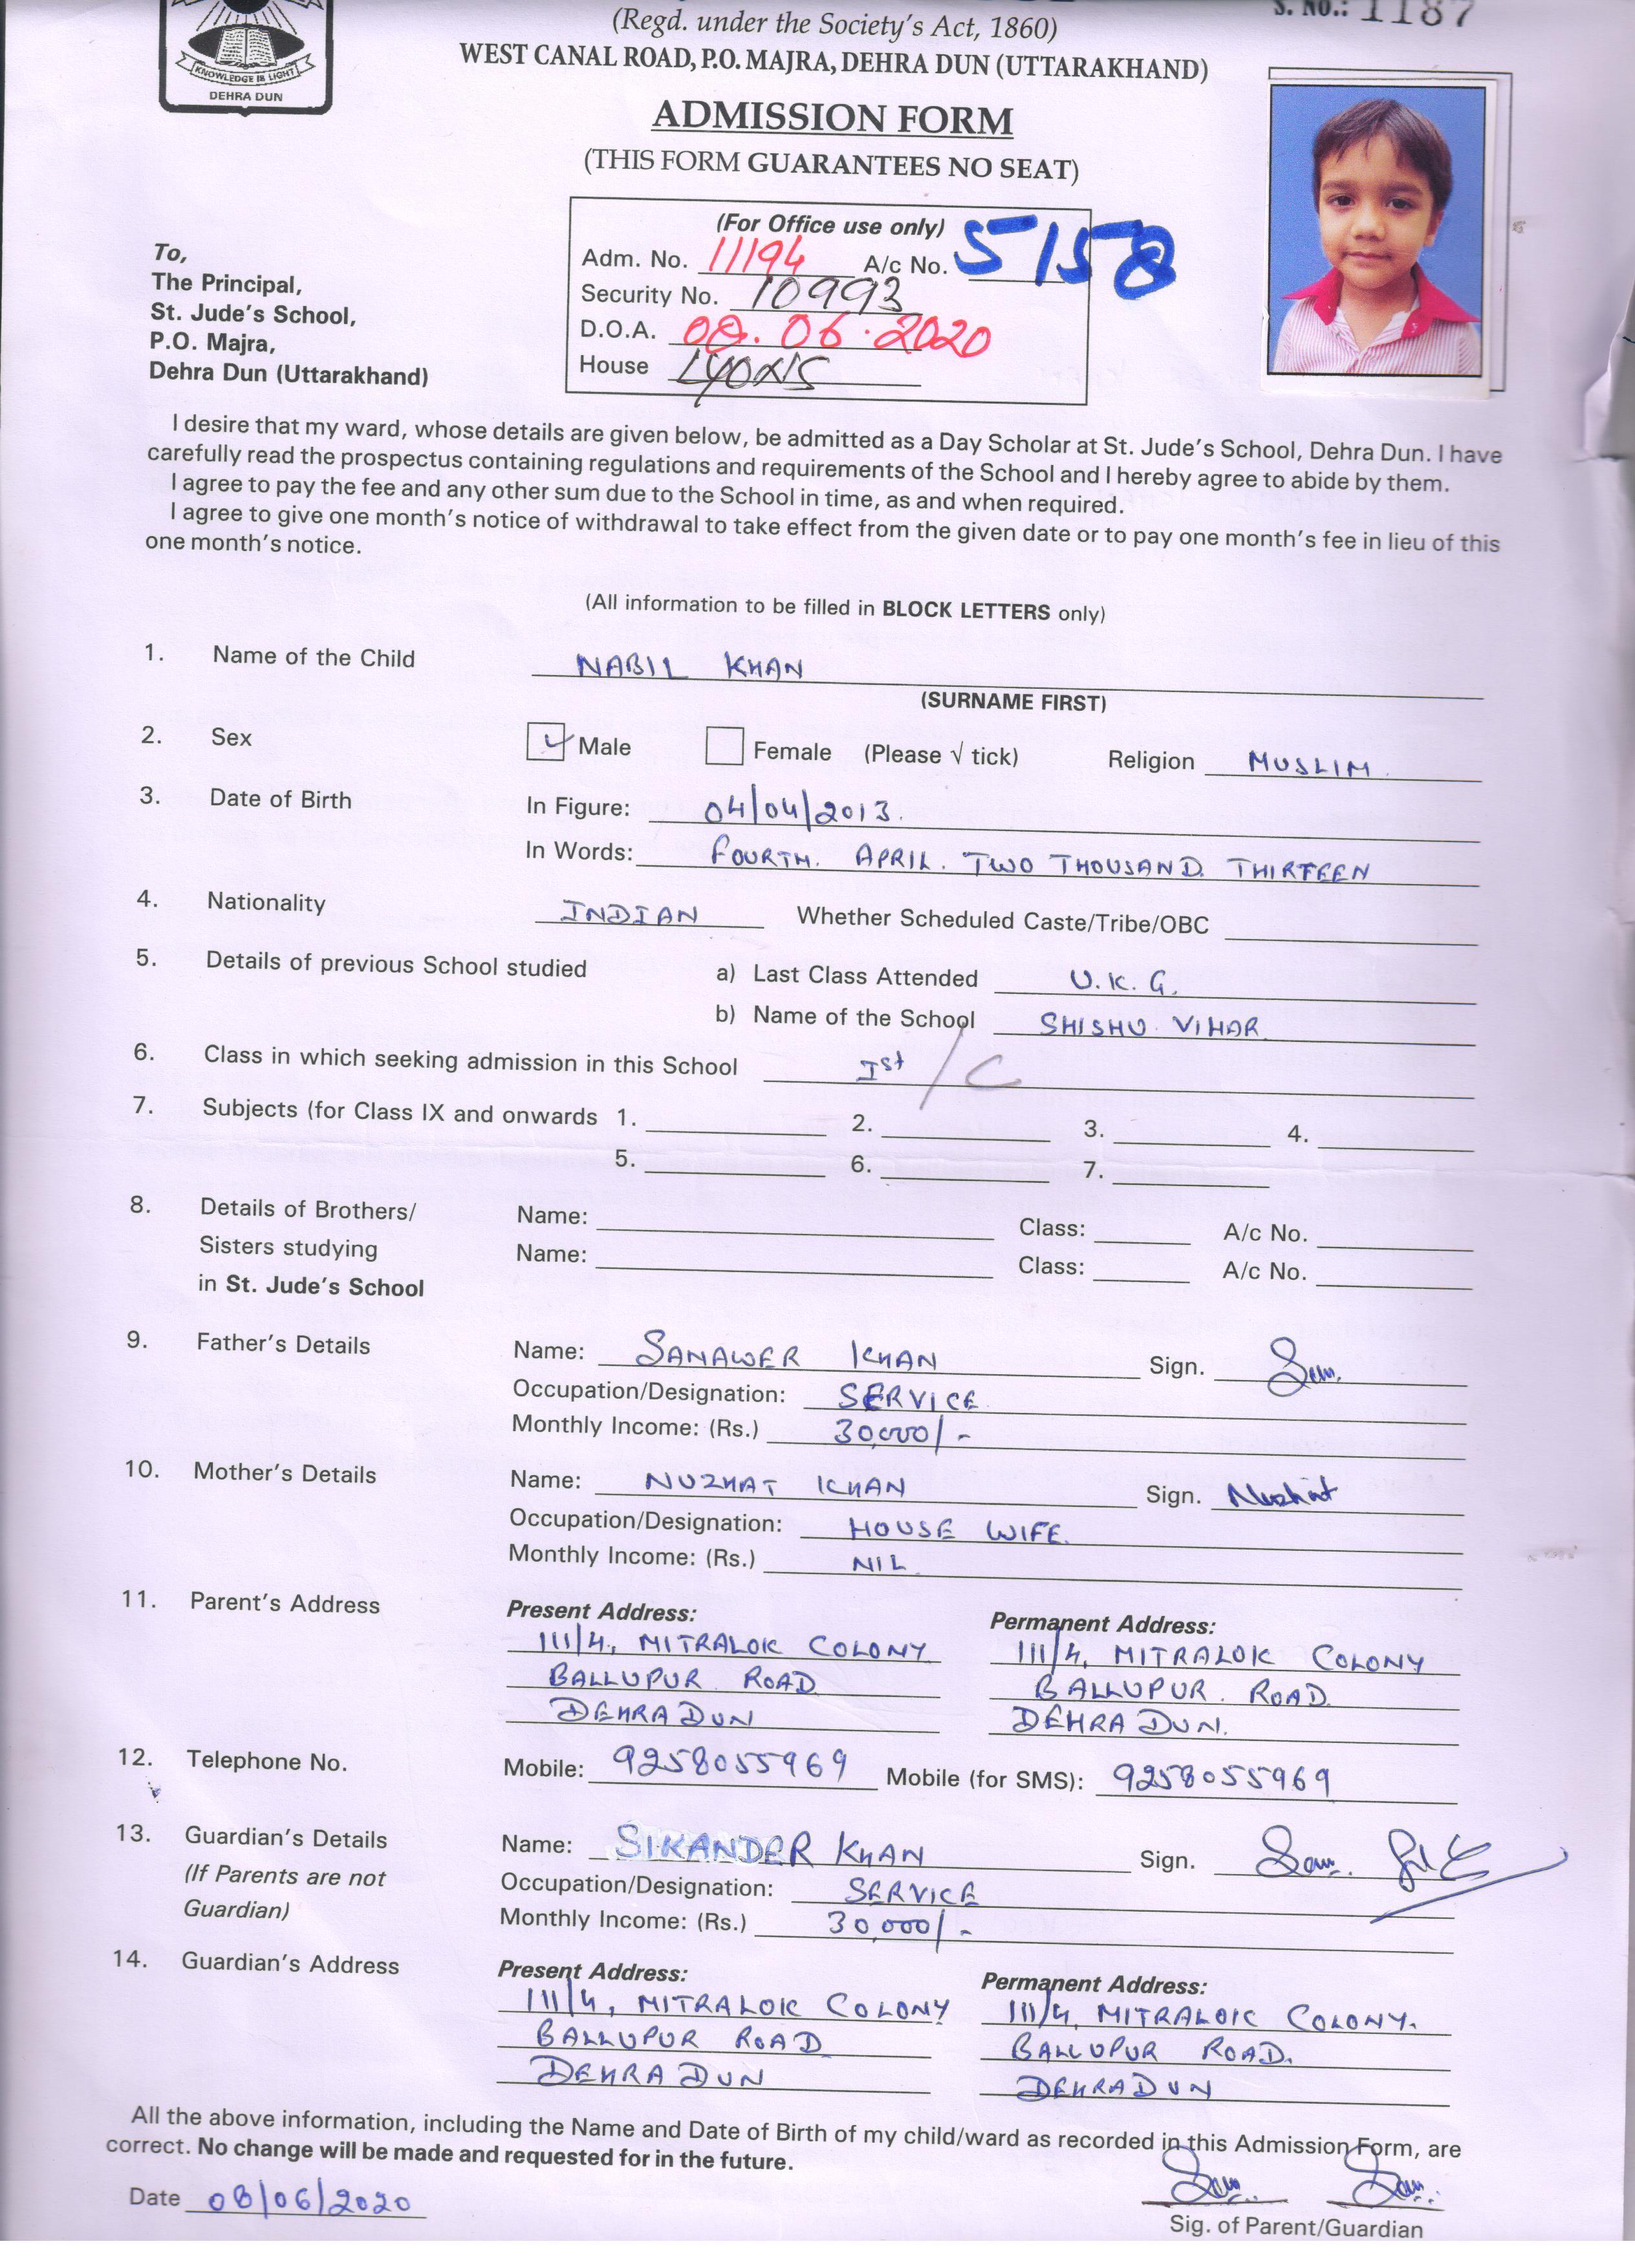 KNOWLEDGE IS LIGHT
DEHRA DUN
(Regd. under the Society's Act, 1860)
S. NO.: 1187
WEST CANAL ROAD, P.O. MAJRA, DEHRA DUN (UTTARAKHAND)
ADMISSION FORM
(THIS FORM GUARANTEES NO SEAT)
(For Office use only)
Adm. No. 11194 A/c No. 5158
Security No. 10993
D.O.A. 08.06.2020
House
To,
The Principal,
St. Jude's School,
P.O. Majra,
Dehra Dun (Uttarakhand)
I desire that my ward, whose details are given below, be admitted as a Day Scholar at St. Jude's School, Dehra Dun. I have
carefully read the prospectus containing regulations and requirements of the School and I hereby agree to abide by them.
I agree to pay the fee and any other sum due to the School in time, as and when required.
I agree to give one month's notice of withdrawal to take effect from the given date or to pay one month's fee in lieu of this
one month's notice.
(All information to be filled in BLOCK LETTERS only)
1. Name of the Child NABIL KHAN
(SURNAME FIRST)
2. Sex Male Female (Please √ tick) Religion MUSLIM
3. Date of Birth In Figure: 04/04/2013.
In Words: FOURTH. APRIL. TWO THOUSAND. THIRTEEN
4. Nationality INDIAN Whether Scheduled Caste/Tribe/OBC
5. Details of previous School studied a) Last Class Attended U.K.G.
b) Name of the School SHISHU VIHAR
6. Class in which seeking admission in this School Ist / C
7. Subjects (for Class IX and onwards 1. 2. 3. 4.
5. 6. 7.
8. Details of Brothers/ Name: Class: A/c No.
Sisters studying Name: Class: A/c No.
in St. Jude's School
9. Father's Details Name: SANAWER KHAN Sign.
Occupation/Designation: SERVICE
Monthly Income: (Rs.) 30,000/-
10. Mother's Details Name: NUZHAT KHAN Sign. Nuzhat
Occupation/Designation: HOUSE WIFE.
Monthly Income: (Rs.) NIL
11. Parent's Address Present Address: Permanent Address:
111/4, MITRALOK COLONY 111/4, MITRALOK COLONY
BALLUPUR ROAD BALLUPUR. ROAD.
DEHRA DUN DEHRA DUN.
12. Telephone No. Mobile: 9258055969 Mobile (for SMS): 9258055969
13. Guardian's Details Name: SIKANDER KHAN Sign.
(If Parents are not Occupation/Designation: SERVICE
Guardian) Monthly Income: (Rs.) 30,000/-
14. Guardian's Address Present Address: Permanent Address:
111/4, MITRALOK COLONY 111/4, MITRALOK COLONY.
BALLUPUR ROAD BALLUPUR ROAD.
DEHRA DUN DEHRADUN
All the above information, including the Name and Date of Birth of my child/ward as recorded in this Admission Form, are
correct. No change will be made and requested for in the future.
Date 08/06/2020
Sig. of Parent/Guardian